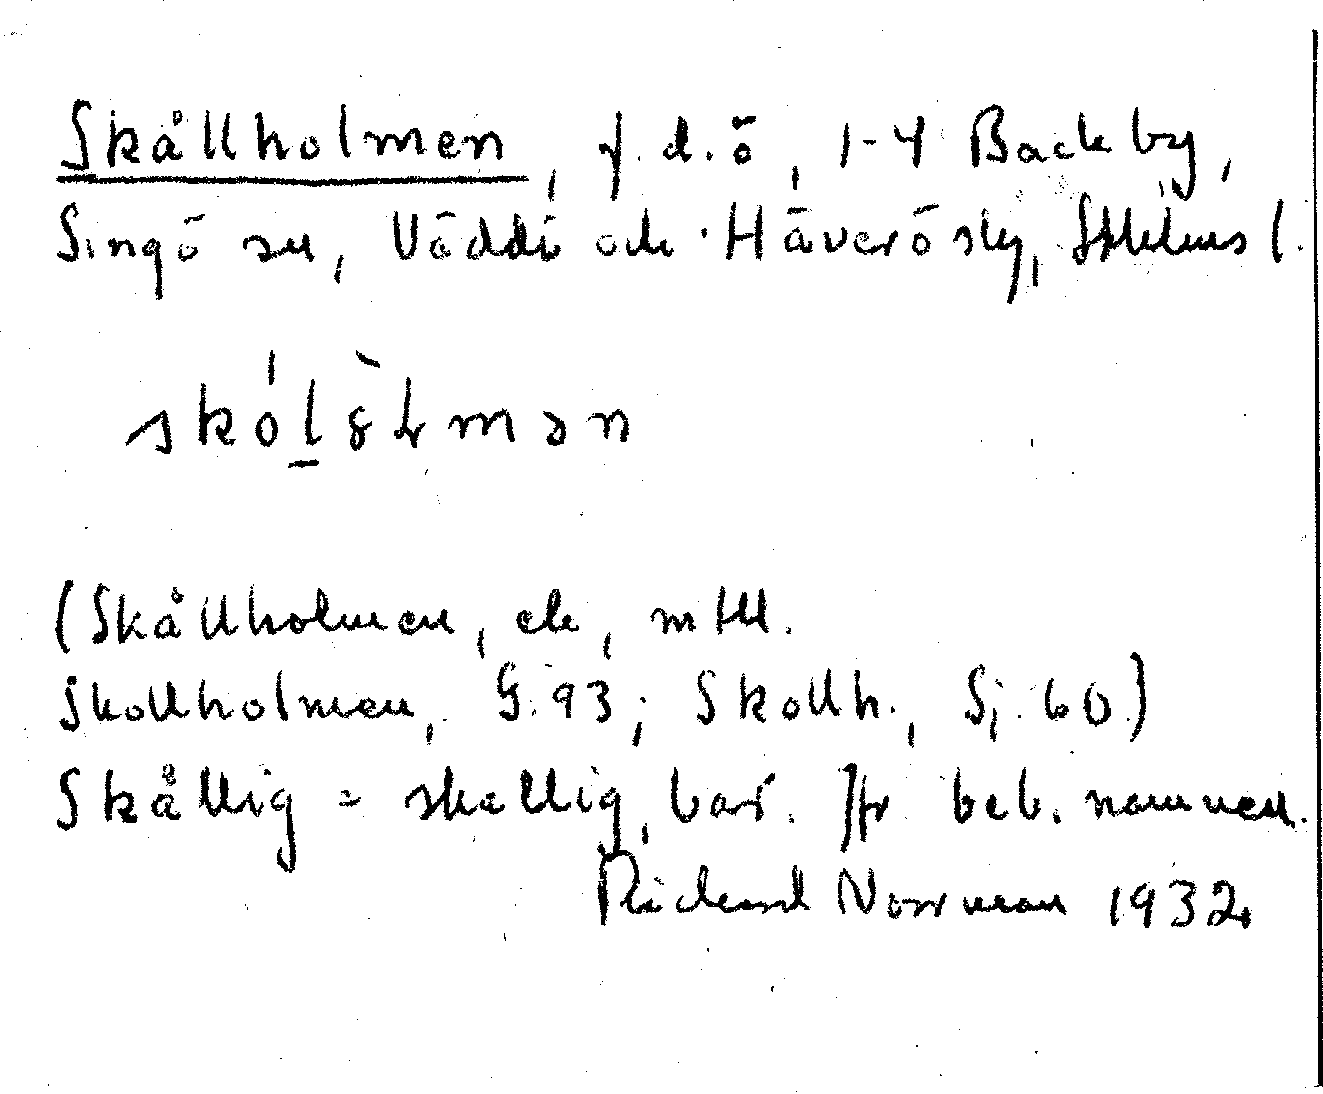 Skållholmen, f.d.ö, 1-4 Backby,
Singö sn, Väddö och Häverö skg, Sthlms l.
skållholmen, ek, mtll.
(Skållholmen, ek,
Skollholmen, G. 93; Skollh., Sj. 60)
Skållig = skallig, bar. Jfr beb. namnen.
Rickard Norrman 1932